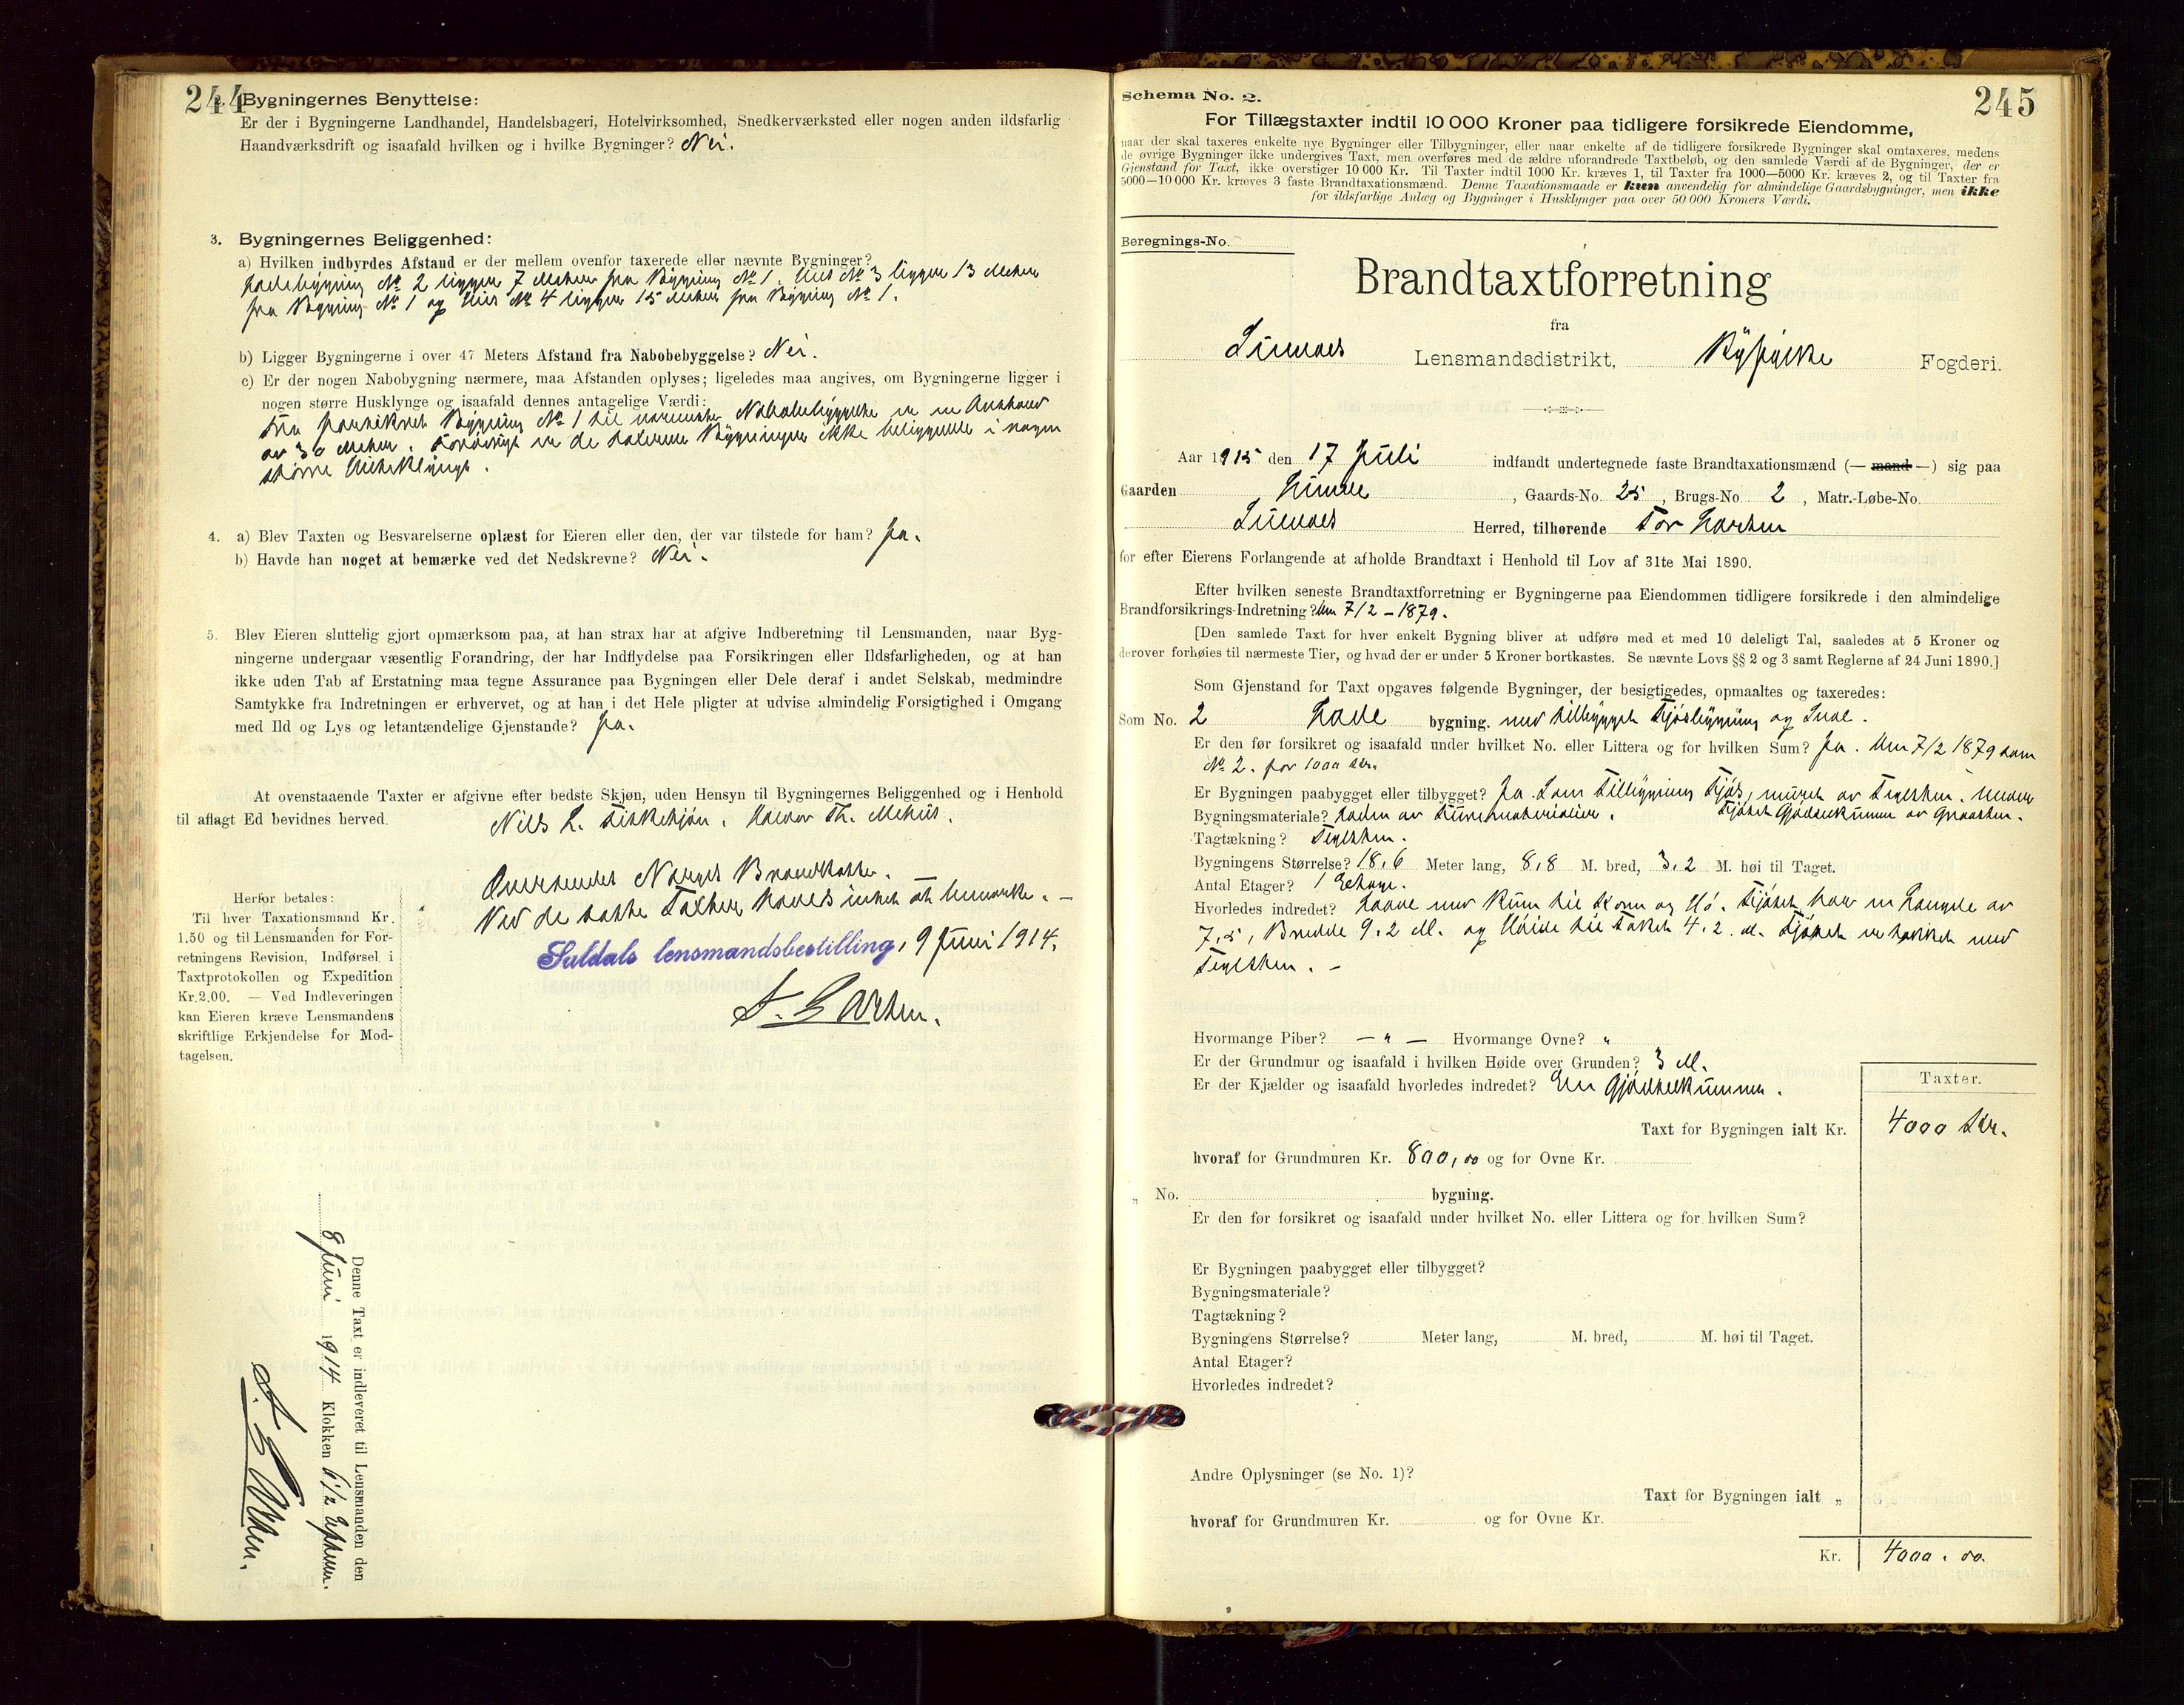 244
2. Bygningernes Benyttelse:
Er der i Bygningerne Landhandel, Handelsbageri, Hotelvirksomhed, Snedkerværksted eller nogen anden ildsfarlig
Haandværksdrift og isaafald hvilken og i hvilke Bygninger? Nei.
3. Bygningernes Beliggenhed:
a) Hvilken indbyrdes Afstand er der mellem ovenfor taxerede eller nævnte Bygninger?
Ladebygning № 2 ligger 7 Meter fra Bygning № 1. Hus № 3 ligger 13 Meter
fra Bygning № 1 og Hus № 4 ligger 15 Meter fra Bygning № 1.
b) Ligger Bygningerne i over 47 Meters Afstand fra Nabobebyggelse? Nei.
c) Er der nogen Nabobygning nærmere, maa Afstanden oplyses; ligeledes maa angives, om Bygningerne ligger i
nogen større Husklynge og isaafald dennes antagelige Værdi:
Fra forsikret Bygning № 1 til nærmeste Nabobebyggelse er en Afstand
av 30 Meter. Forøvrigt er de taxerede Bygninger ikke beliggende i nogen
større Husklynge.
4. a) Blev Taxten og Besvarelserne oplæst for Eieren eller den, der var tilstede for ham? Ja.
b) Havde han noget at bemærke ved det Nedskrevne? Nei.
5. Blev Eieren sluttelig gjort opmærksom paa, at han strax har at afgive Indberetning til Lensmanden, naar Byg-
ningerne undergaar væsentlig Forandring, der har Indflydelse paa Forsikringen eller Ildsfarligheden, og at han
ikke uden Tab af Erstatning maa tegne Assurance paa Bygningen eller Dele deraf i andet Selskab, medmindre
Samtykke fra Indretningen er erhvervet, og at han i det Hele pligter at udvise almindelig Forsigtighed i Omgang
med Ild og Lys og letantændelige Gjenstande? Ja.
At ovenstaaende Taxter er afgivne efter bedste Skjøn, uden Hensyn til Bygningernes Beliggenhed og i Henhold
til aflagt Ed bevidnes herved. Nils L. Halvor Th. Mehus.
Oversendes Norges Brandkasse.
Ved de satte Taxter haves intet at bemærke. —
Suldals lensmandsbestilling, 9 Juni 1914.
Herfor betales:
Til hver Taxationsmand Kr.
1.50 og til Lensmanden for For-
retningens Revision, Indførsel i
Taxtprotokollen og Expedition
Kr. 2.00. — Ved Indleveringen
kan Eieren kræve Lensmandens
skriftlige Erkjendelse for Mod-
tagelsen.
Denne Taxt er indleveret til Lensmanden den
8 Juni 1914 Klokken 6 1/2 Efterm.
245
Schema No. 2.
For Tillægstaxter indtil 10 000 Kroner paa tidligere forsikrede Eiendomme,
naar der skal taxeres enkelte nye Bygninger eller Tilbygninger, eller naar enkelte af de tidligere forsikrede Bygninger skal omtaxeres, medens
de øvrige Bygninger ikke undergives Taxt, men overføres med de ældre uforandrede Taxtbeløb, og den samlede Værdi af de Bygninger, der er
Gjenstand for Taxt, ikke overstiger 10 000 Kr. Til Taxter indtil 1000 Kr. kræves 1, til Taxter fra 1000—5000 Kr. kræves 2, og til Taxter fra
5000—10 000 Kr. kræves 3 faste Brandtaxationsmænd. Denne Taxationsmaade er kun anvendelig for almindelige Gaardsbygninger, men ikke
for ildsfarlige Anlæg og Bygninger i Husklynger paa over 50 000 Kroners Værdi.
Beregnings-No.
Brandtaxtforretning
fra
Suldals Lensmandsdistrikt, Ryfylke Fogderi.
Aar 1915 den 17 Juli indfandt undertegnede faste Brandtaxationsmænd (— mand —) sig paa
Gaarden , Gaards-No. 25, Brugs-No. 2, Matr.-Løbe-No.
Suldals Herred, tilhørende Tor Larsen
for efter Eierens Forlangende at afholde Brandtaxt i Henhold til Lov af 31te Mai 1890.
Efter hvilken seneste Brandtaxtforretning er Bygningerne paa Eiendommen tidligere forsikrede i den almindelige
Brandforsikrings-Indretning? Um 7/2 – 1879.
[Den samlede Taxt for hver enkelt Bygning bliver at udføre med et med 10 deleligt Tal, saaledes at 5 Kroner og
derover forhøies til nærmeste Tier, og hvad der er under 5 Kroner bortkastes. Se nævnte Lovs §§ 2 og 3 samt Reglerne af 24 Juni 1890.]
Som Gjenstand for Taxt opgaves følgende Bygninger, der besigtigedes, opmaaltes og taxeredes:
Som No. 2 Lade bygning. med tilbygget Fjøsbygning og Sval.
Er den før forsikret og isaafald under hvilket No. eller Littera og for hvilken Sum? Ja. Um 7/2 1879 som
№ 2. for 1000 Kr.
Er Bygningen paabygget eller tilbygget? Ja. Som Tilbygning Fjøs, muret av Teglsten. Under
Bygningsmateriale? Laden av Furematerialier. Fjøset Gjødselkumme av Graasten.
Tagtækning? Teglsten.
Bygningens Størrelse? 18,6 Meter lang, 8,8 M. bred, 3,2 M. høi til Taget.
Antal Etager? 1 Etage.
Hvorledes indredet? Laave med Rum til Korn og Hø. Fjøset har en Længde av
7,5, Bredde 9.2 M. og Høide til Taket 4.2. M. Fjøset er tækket med
Teglsten. –
Hvormange Piber? — " — Hvormange Ovne? "
Er der Grundmur og isaafald i hvilken Høide over Grunden? 3 M.
Er der Kjælder og isaafald hvorledes indredet? En Gjødselkumme.
Taxter.
Taxt for Bygningen ialt Kr. 4000 Kr.
hvoraf for Grundmuren Kr. 800,00 og for Ovne Kr.
„ No. bygning.
Er den før forsikret og isaafald under hvilket No. eller Littera og for hvilken Sum?
Er Bygningen paabygget eller tilbygget?
Bygningsmateriale?
Tagtækning?
Bygningens Størrelse? Meter lang, M. bred, M. høi til Taget.
Antal Etager?
Hvorledes indredet?
Andre Oplysninger (se No. 1)?
Taxt for Bygningen ialt „
hvoraf for Grundmuren Kr. og for Ovne Kr.
Kr. 4000.00.